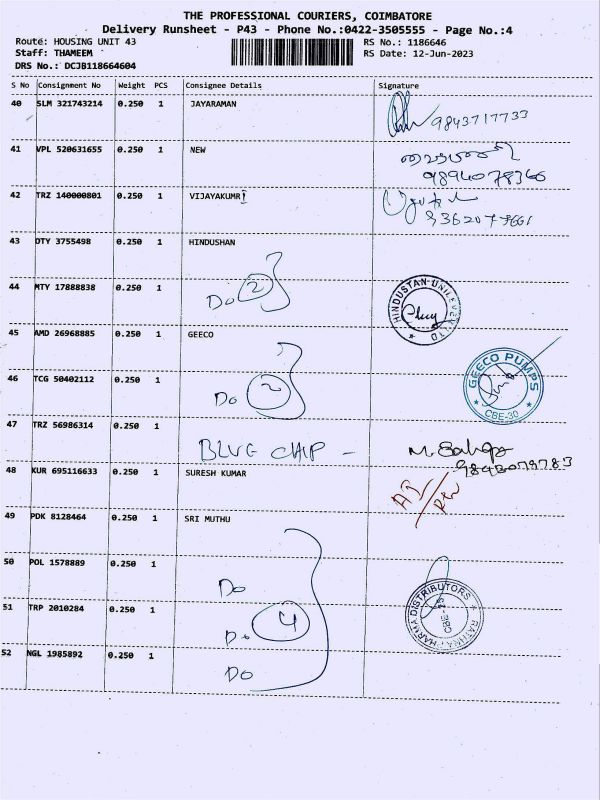 THE PROFESSIONAL COURIERS, COIMBATORE
Delivery Runsheet - P43 - Phone No.:0422-3505555 - Page No.:4
Route: HOUSING UNIT 43
RS No.: 1186646
Staff: THAMEEM
RS Date: 12-Jun-2023
DRS No.: DCJB118664604
S No Consignment No Weight PCS Consignee Details Signature
40 SLM 321743214 0.250 1 JAYARAMAN
9843717733
41 VPL 520631655 0.250 1 NEW
9894078366
42 TRZ 140000801 0.250 1 VIJAYAKUMR
43 DTY 3755498 0.250 1 HINDUSHAN
44 MTY 17888838 0.250 1 Do 2
HINDUSTAN UNILEVER LTD
45 AMD 26968885 0.250 1 GEECO
46 TCG 50402112 0.250 1 Do 2
GEECO PUMPS
CBE-30
47 TRZ 56986314 0.250 1 BLUE CHIP -
9843079783
48 KUR 695116633 0.250 1 SURESH KUMAR
49 PDK 8128464 0.250 1 SRI MUTHU
50 POL 1578889 0.250 1 Do
51 TRP 2010284 0.250 1 Do 4
DISTRIBUTORS
52 NGL 1985892 0.250 1 Do